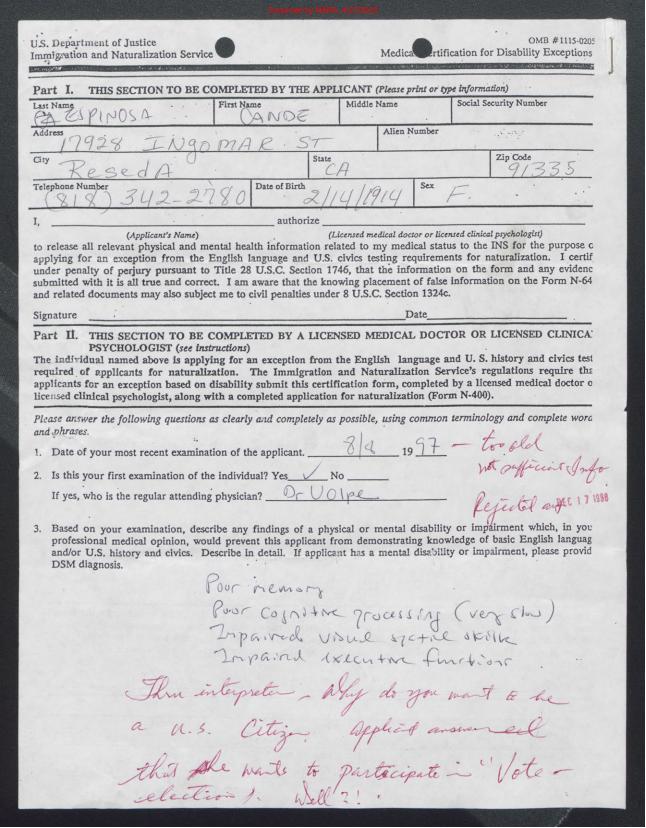 U.S. Department of Justice
Immigration and Naturalization Service
OMB #1115-0205
Medical Certification for Disability Exceptions
Part I. THIS SECTION TO BE COMPLETED BY THE APPLICANT (Please print or type information)
Last Name First Name Middle Name Social Security Number
ESPINOSA CANDE
Address Alien Number
17928 INGOMAR ST
City State Zip Code
ResedA CA 91335
Telephone Number Date of Birth Sex
(818) 342-2780 2/14/1914 F.
I, authorize
(Applicant's Name) (Licensed medical doctor or licensed clinical psychologist)
to release all relevant physical and mental health information related to my medical status to the INS for the purpose o
applying for an exception from the English language and U.S. civics testing requirements for naturalization. I certif
under penalty of perjury pursuant to Title 28 U.S.C. Section 1746, that the information on the form and any evidenc
submitted with it is all true and correct. I am aware that the knowing placement of false information on the Form N-64
and related documents may also subject me to civil penalties under 8 U.S.C. Section 1324c.
Signature Date
Part II. THIS SECTION TO BE COMPLETED BY A LICENSED MEDICAL DOCTOR OR LICENSED CLINICA
PSYCHOLOGIST (see instructions)
The individual named above is applying for an exception from the English language and U. S. history and civics test
required of applicants for naturalization. The Immigration and Naturalization Service's regulations require tha
applicants for an exception based on disability submit this certification form, completed by a licensed medical doctor o
licensed clinical psychologist, along with a completed application for naturalization (Form N-400).
Please answer the following questions as clearly and completely as possible, using common terminology and complete word
and phrases.
1. Date of your most recent examination of the applicant. 8/8 1997 - too old
not sufficient Info
2. Is this your first examination of the individual? Yes ✓ No
If yes, who is the regular attending physician? Dr Volpe
Rejected DEC 17 1998
3. Based on your examination, describe any findings of a physical or mental disability or impairment which, in you
professional medical opinion, would prevent this applicant from demonstrating knowledge of basic English languag
and/or U.S. history and civics. Describe in detail. If applicant has a mental disability or impairment, please provid
DSM diagnosis.
Poor memory
Poor cognitive processing (very slow)
Impaired visual skills
Impaired executive functions
Thru interpreter - Why do you want to be
a U.S. Citizen. applicant answered
that she wants to participate in "Vote -
elections. Well?!